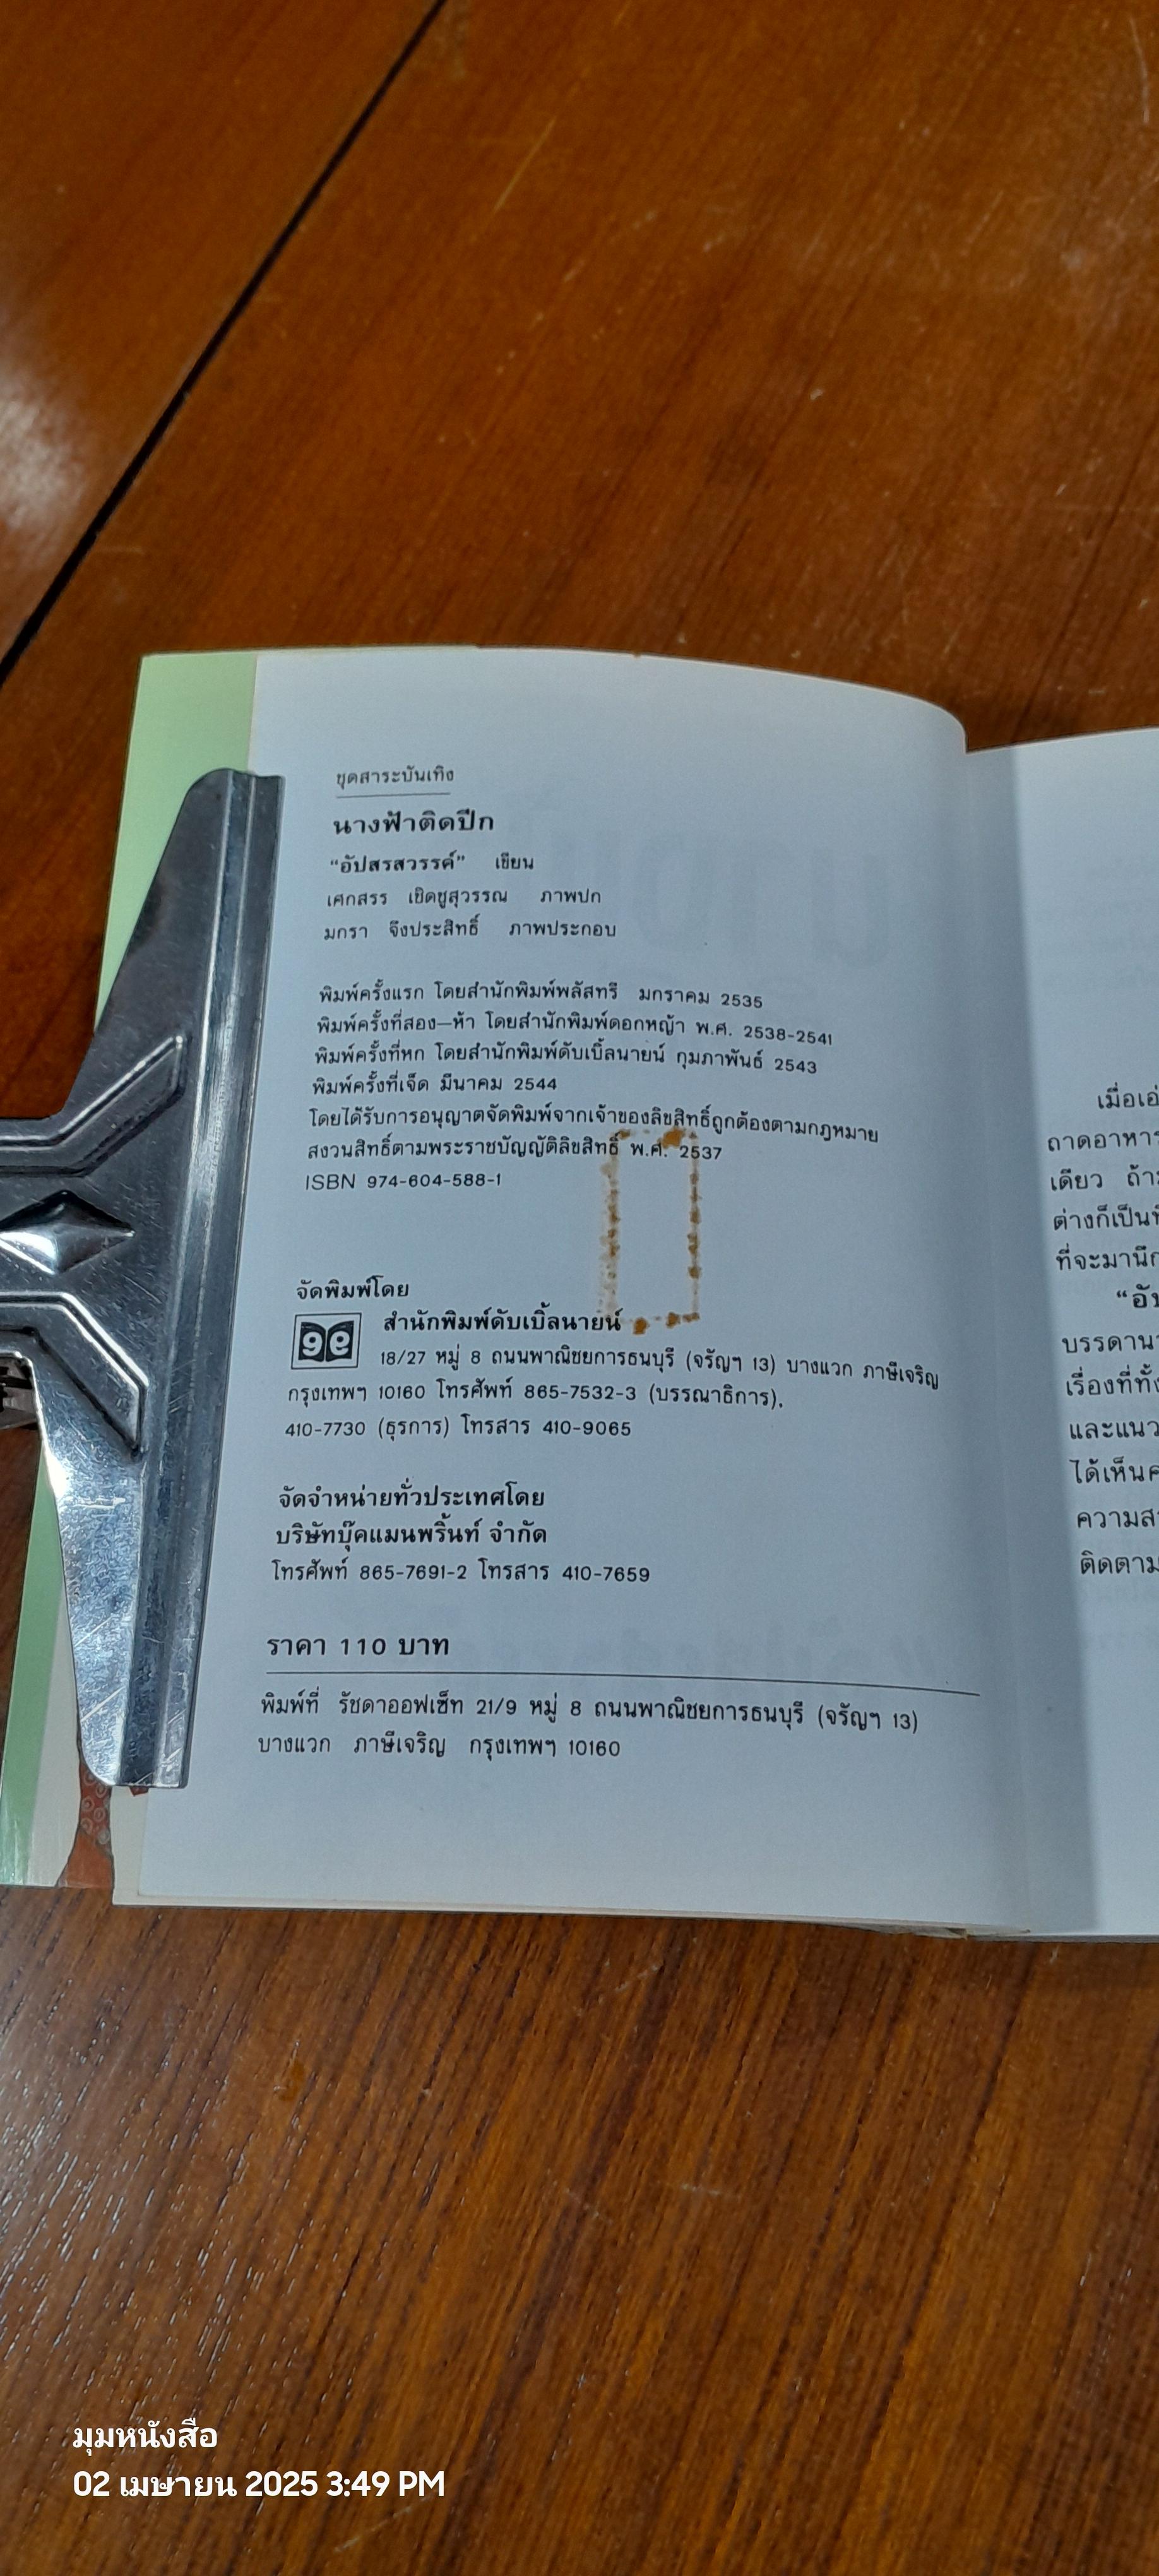 ชุดสาระบันเทิง
นางฟ้าติดปีก
“อัปสรสวรรค์” เขียน
เศกสรร เชิดชูสุวรรณ ภาพปก
มกรา จึงประสิทธิ์ ภาพประกอบ
พิมพ์ครั้งแรก โดยสำนักพิมพ์พลัสทรี มกราคม 2535
พิมพ์ครั้งที่สอง—ห้า โดยสำนักพิมพ์ดอกหญ้า พ.ศ. 2538-2541
พิมพ์ครั้งที่หก โดยสำนักพิมพ์ดับเบิ้ลนายน์ กุมภาพันธ์ 2543
พิมพ์ครั้งที่เจ็ด มีนาคม 2544
โดยได้รับการอนุญาตจัดพิมพ์จากเจ้าของลิขสิทธิ์ถูกต้องตามกฎหมาย
สงวนสิทธิ์ตามพระราชบัญญัติลิขสิทธิ์ พ.ศ. 2537
ISBN 974-604-588-1
จัดพิมพ์โดย
99
สำนักพิมพ์ดับเบิ้ลนายน์
18/27 หมู่ 8 ถนนพาณิชยการธนบุรี (จรัญฯ 13) บางแวก ภาษีเจริญ
กรุงเทพฯ 10160 โทรศัพท์ 865-7532-3 (บรรณาธิการ),
410-7730 (ธุรการ) โทรสาร 410-9065
จัดจำหน่ายทั่วประเทศโดย
บริษัทบุ๊คแมนพริ้นท์ จำกัด
โทรศัพท์ 865-7691-2 โทรสาร 410-7659
ราคา 110 บาท
พิมพ์ที่ รัชดาออฟเซ็ท 21/9 หมู่ 8 ถนนพาณิชยการธนบุรี (จรัญฯ 13)
บางแวก ภาษีเจริญ กรุงเทพฯ 10160
เมื่อเอ่
ถาดอาหาร
เดียว ถ้า
ต่างก็เป็น
ที่จะมานึก
“อัป
บรรดานา
เรื่องที่ทั้ง
และแนว
ได้เห็นค
ความส
ติดตาม
มุมหนังสือ
02 เมษายน 2025 3:49 PM